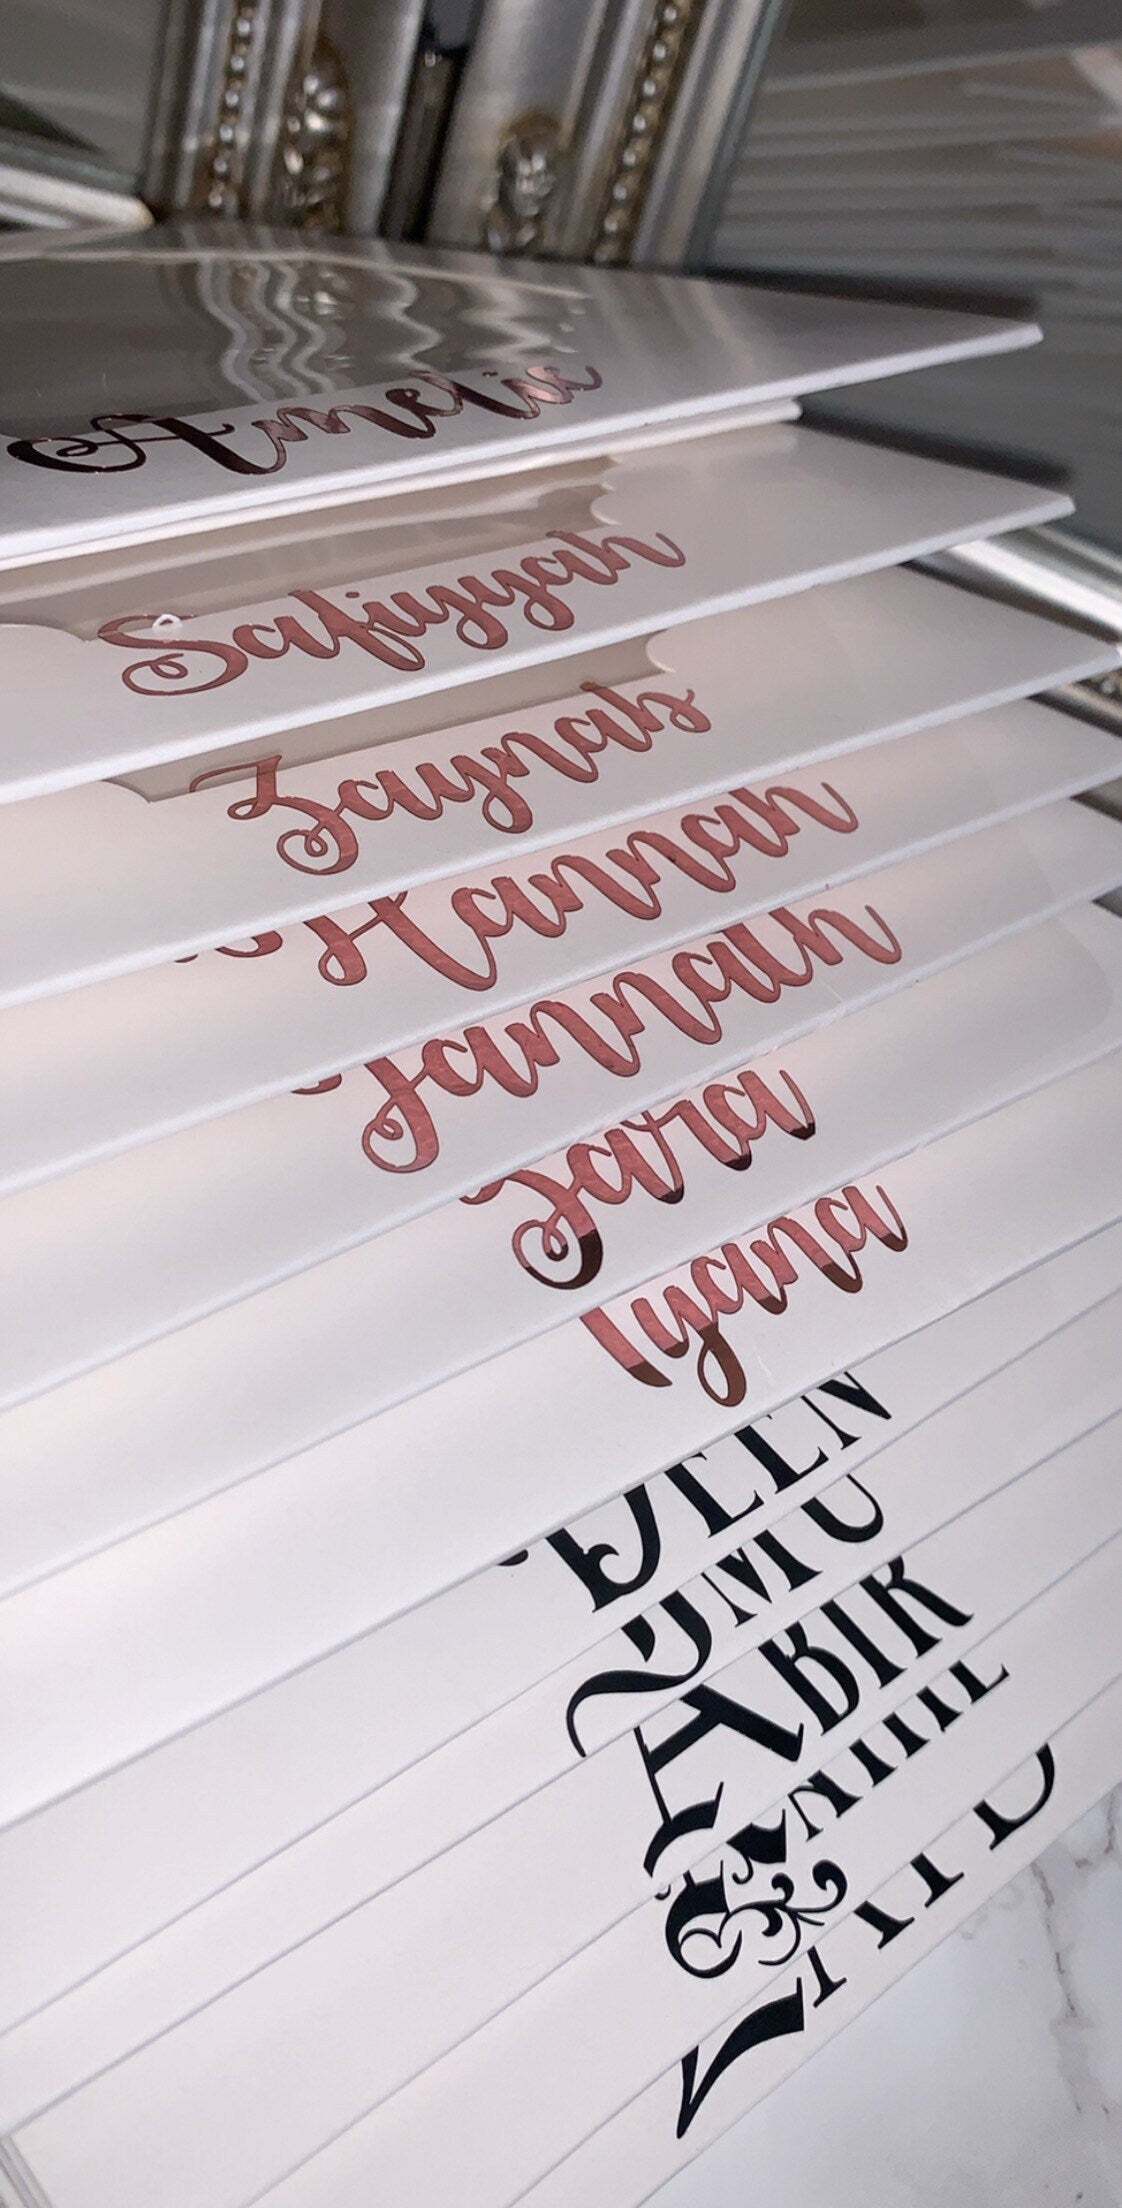 Amelie
Safiyyah
Zaynab
Hannah
Jannath
Zara
Iyana
DEEN
MU
ABIR